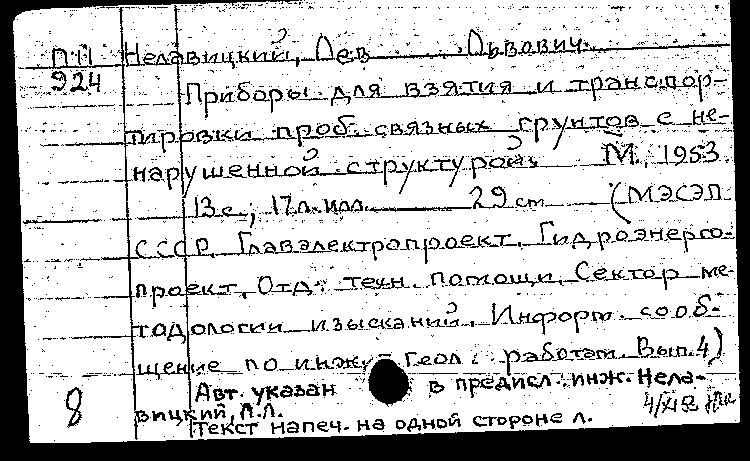 П11 Нелавицкий, Лев Львович.
924
Приборы для взятия и транспор-
тировки проб связных грунтов с не-
нарушенной структурой. М., 1953.
13 с.; 17 л. илл. 29 cm (МЭСЭП
СССР. Главэлектропроект. Гидроэнерго-
проект. Отд. техн. помощи. Сектор ме-
тодологии изысканий. Информ. сооб-
щение по инж. геол. работам. Вып. 4)
Авт. указан в предисл.: инж. Нела-
8 вицкий, Л.Л.
Текст напеч. на одной стороне л.
4/XI 53